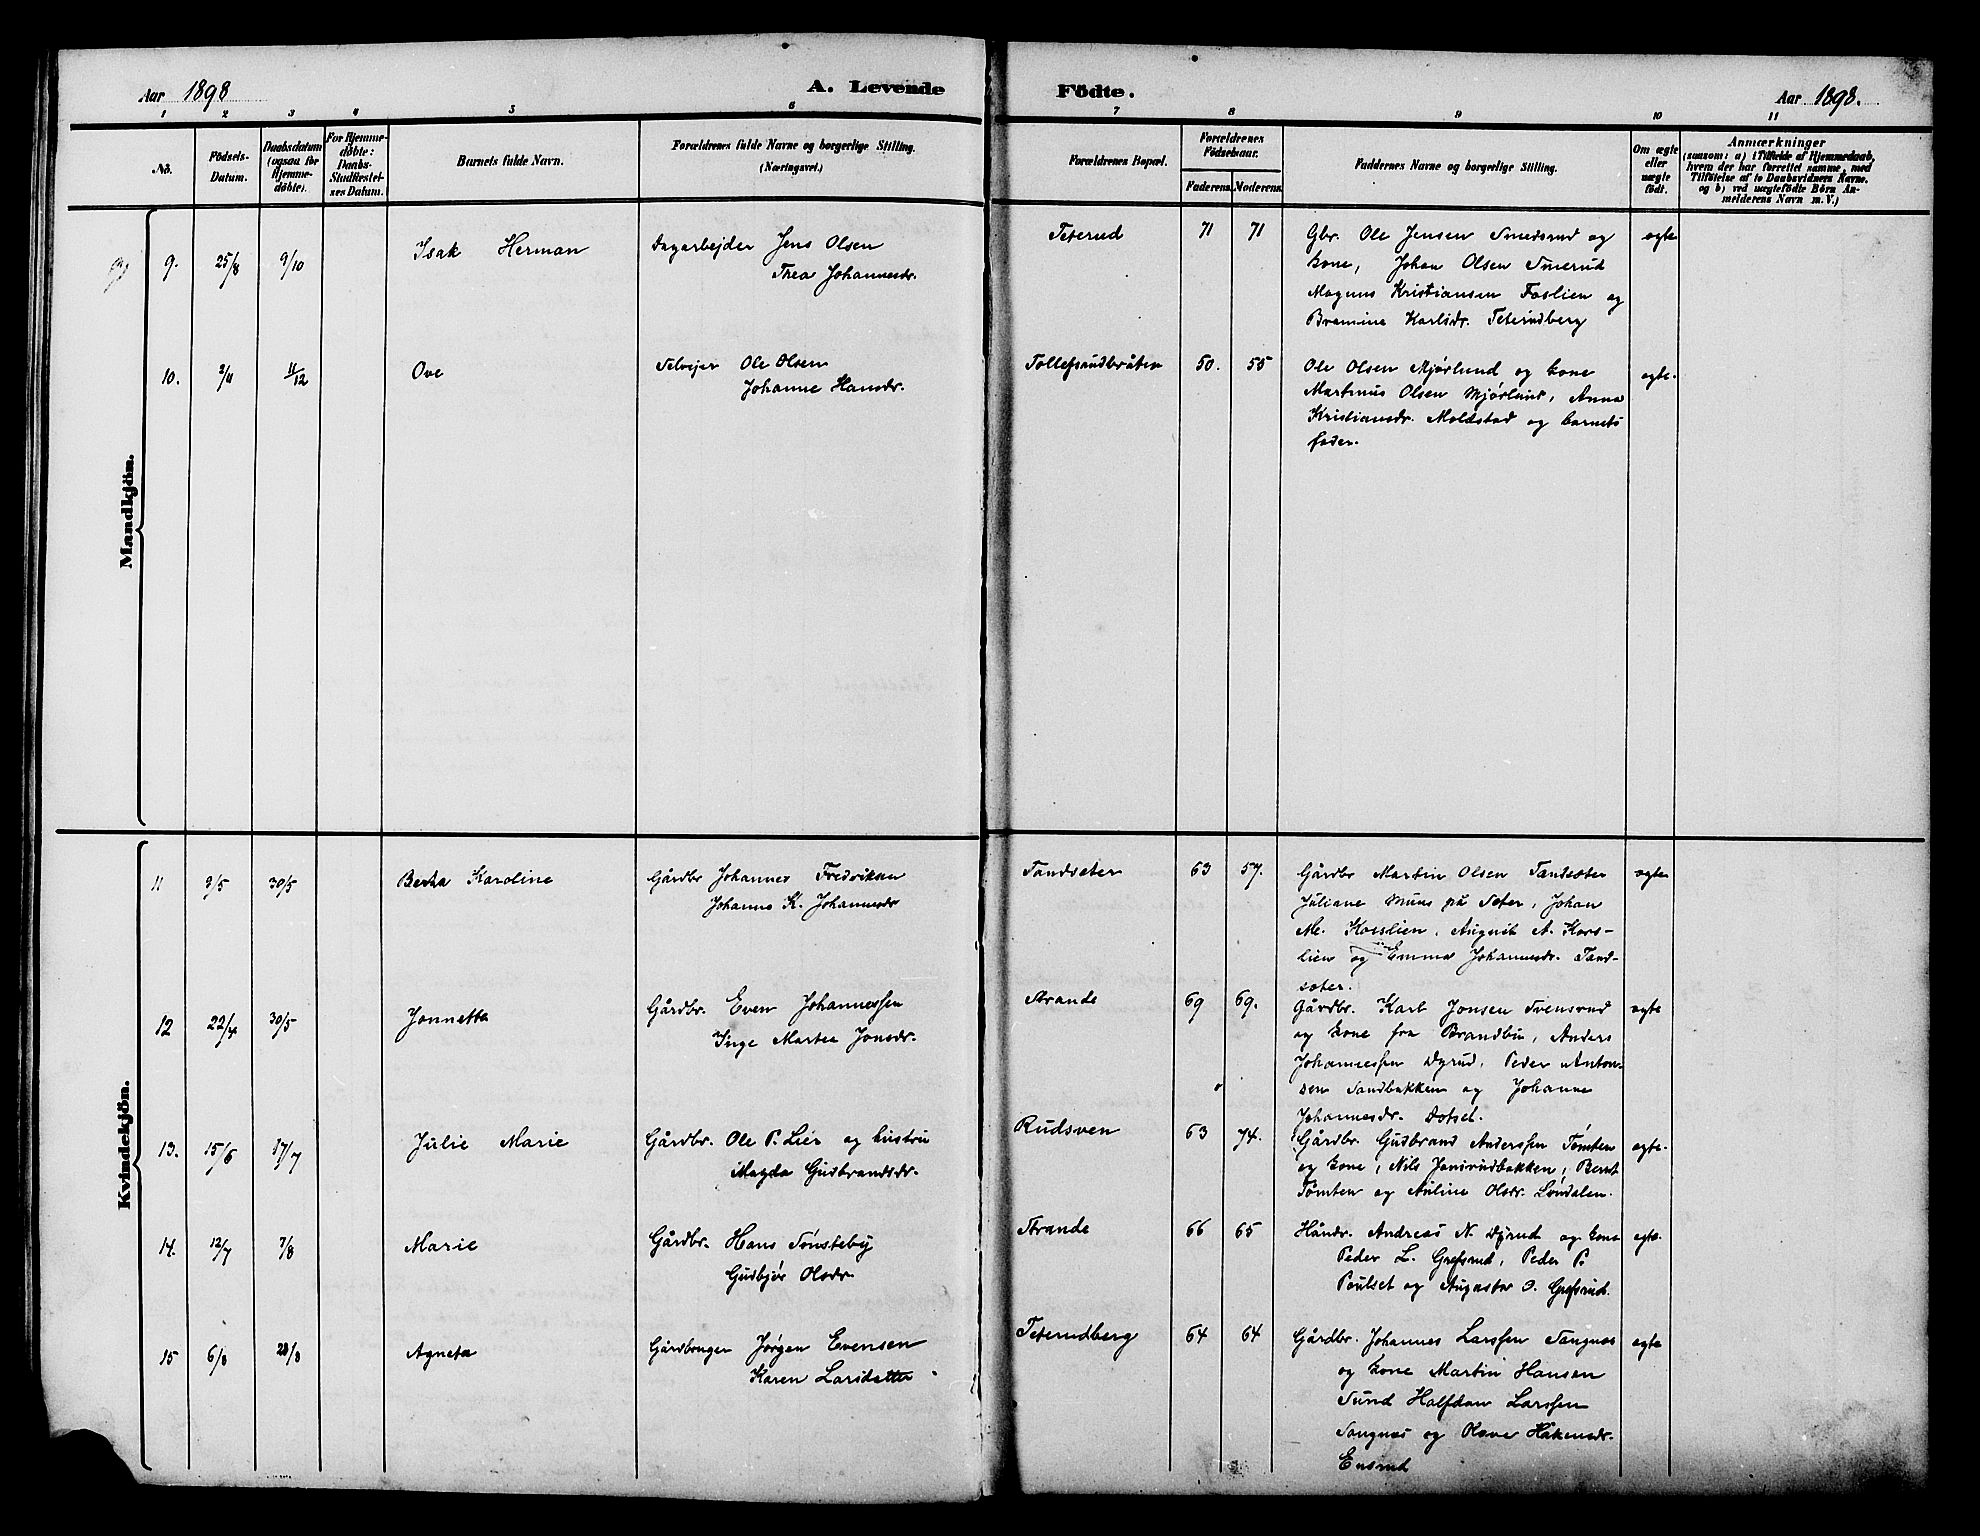 Aar 1898 A. Levende Födte. Aar 1898.
1 2 3 4 5 6 7 8 9 10 11
No.
Födsels-
Datum.
Daabsdatum
(ogsaa for
Hjemme-
døbte).
For Hjemme-
døbte:
Daabs-
Stadfæstel-
ses Datum.
Barnets fulde Navn.
Forældrenes fulde Navne og borgerlige Stilling.
(Næringsvei.)
Forældrenes Bopæl.
Forældrenes
Födselsaar.
Faderens. Moderens.
Faddernes Navne og borgerlige Stilling.
Om ægte
eller
uægte
födt.
Anmærkninger
(saasom: a) i Tilfælde af Hjemmedaab,
hvem der har forrettet samme, med
Tilföielse af to Daabsvidners Navne,
og b) ved uægtefödte Börn An-
melderens Navn m. V.)
Mandkjön.
9. 25/8 9/10 Isak Herman Dagarbejder Jens Olsen Teterud 71 71 Gbr. Ole Jensen Smedsrud og ægte
Thea Johannesdr. kone, Johan Olsen Smerud
Magnus Kristiansen Faslien og
Bramine Karlsdr. Teterudberg
10. 3/11 11/12 Ove Selvejer Ole Olsen Tollefsrudbråten 50. 55 Ole Olsen Mjørlund og kone ægte.
Johanne Hansdr. Martinus Olsen Mjørlund, Anna
Kristiansdr. Moldstad og barnets
fader.
Kvindekjön.
11 3/5 30/5 Berta Karoline Gårdbr Johannes Fredriksen Tandseter 63 57. Gårdbr Martin Olsen Tandseter ægte
Johanne K. Johannesdr Juliane Muus på Seter, Johan
M. Korslien, August A. Kors-
lien og Emma Johannesdr. Tand-
seter.
12 22/4 30/5 Jonnetta Gårdbr. Even Johannessen Strande 69 69. Gårdbr. Karl Jonsen Svensrud ægte
Inge Martea Jonsdr. og kone fra Brandbu, Anders
Johannessen Dyrud, Peder Anton-
sen Sandbakken og Johanne
Johannesdr. Dotset.
13. 15/6 17/7 Julie Marie Gårdbr. Ole P. Lier og hustru Rudsven 63 74. Gårdbr. Gudbrand Anderssen Tømten ægte.
Magda Gudbrandsdr. og kone, Nils Jonsrudbakken, Bernt
Tømten og Auline Olsdr. Lundalen.
14. 12/7 7/8 Marie Gårdbr. Hans Tønsteby Strande 66 65 Håndv. Andreas N. Dyrud og kone ægte.
Gudbjør Olsdr. Peder L. Grefsrud, Peder P.
Poulset og Augusta O. Grefsrud.
15 6/8 28/8 Agneta Gårdbruger Jørgen Evensen Teterudberg 64 64 Gårdbr. Johannes Larssen Sangnes ægte
Karen Larsdatter og kone Martin Hansen
Sund Halfdan Larssen
Sangnes og Håkensdr.
Ensrud